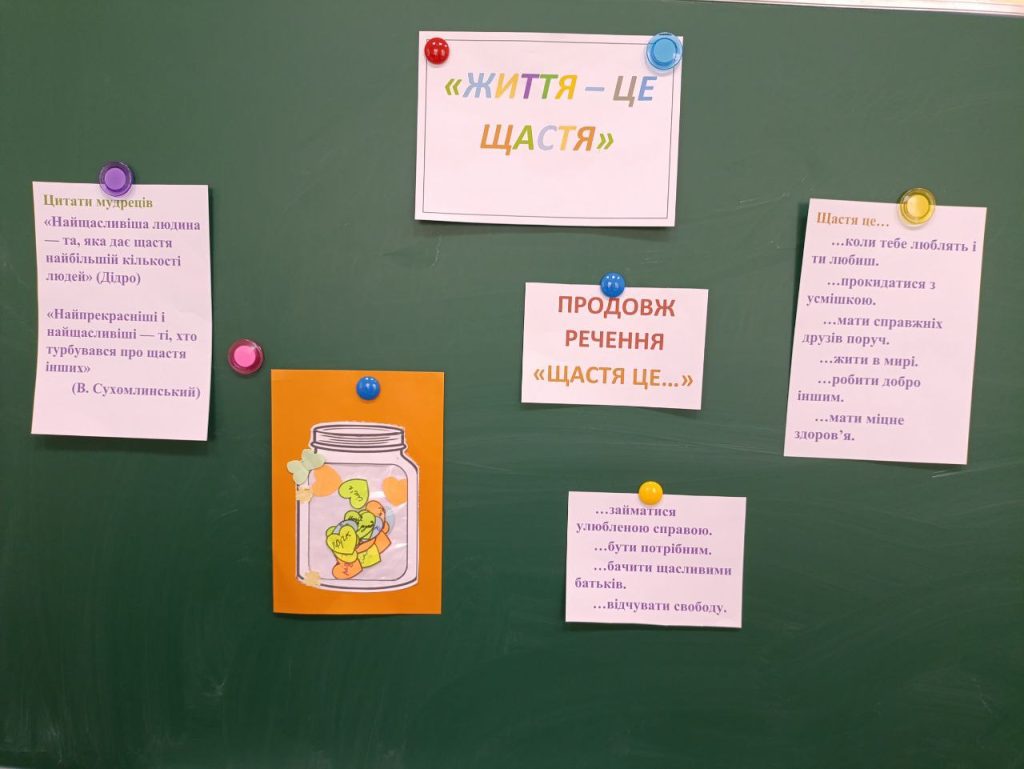 «ЖИТТЯ – ЦЕ
ЩАСТЯ»
Цитати мудреців
«Найщасливіша людина
— та, яка дає щастя
найбільшій кількості
людей» (Дідро)
«Найпрекрасніші і
найщасливіші — ті, хто
турбувався про щастя
інших»
(В. Сухомлинський)
ПРОДОВЖ
РЕЧЕННЯ
«ЩАСТЯ ЦЕ...»
Щастя це…
…коли тебе люблять і
ти любиш.
…прокидатися з
усмішкою.
…мати справжніх
друзів поруч.
…жити в мирі.
…робити добро
іншим.
…мати міцне
здоров’я.
…займатися
улюбленою справою.
…бути потрібним.
…бачити щасливими
батьків.
…відчувати свободу.